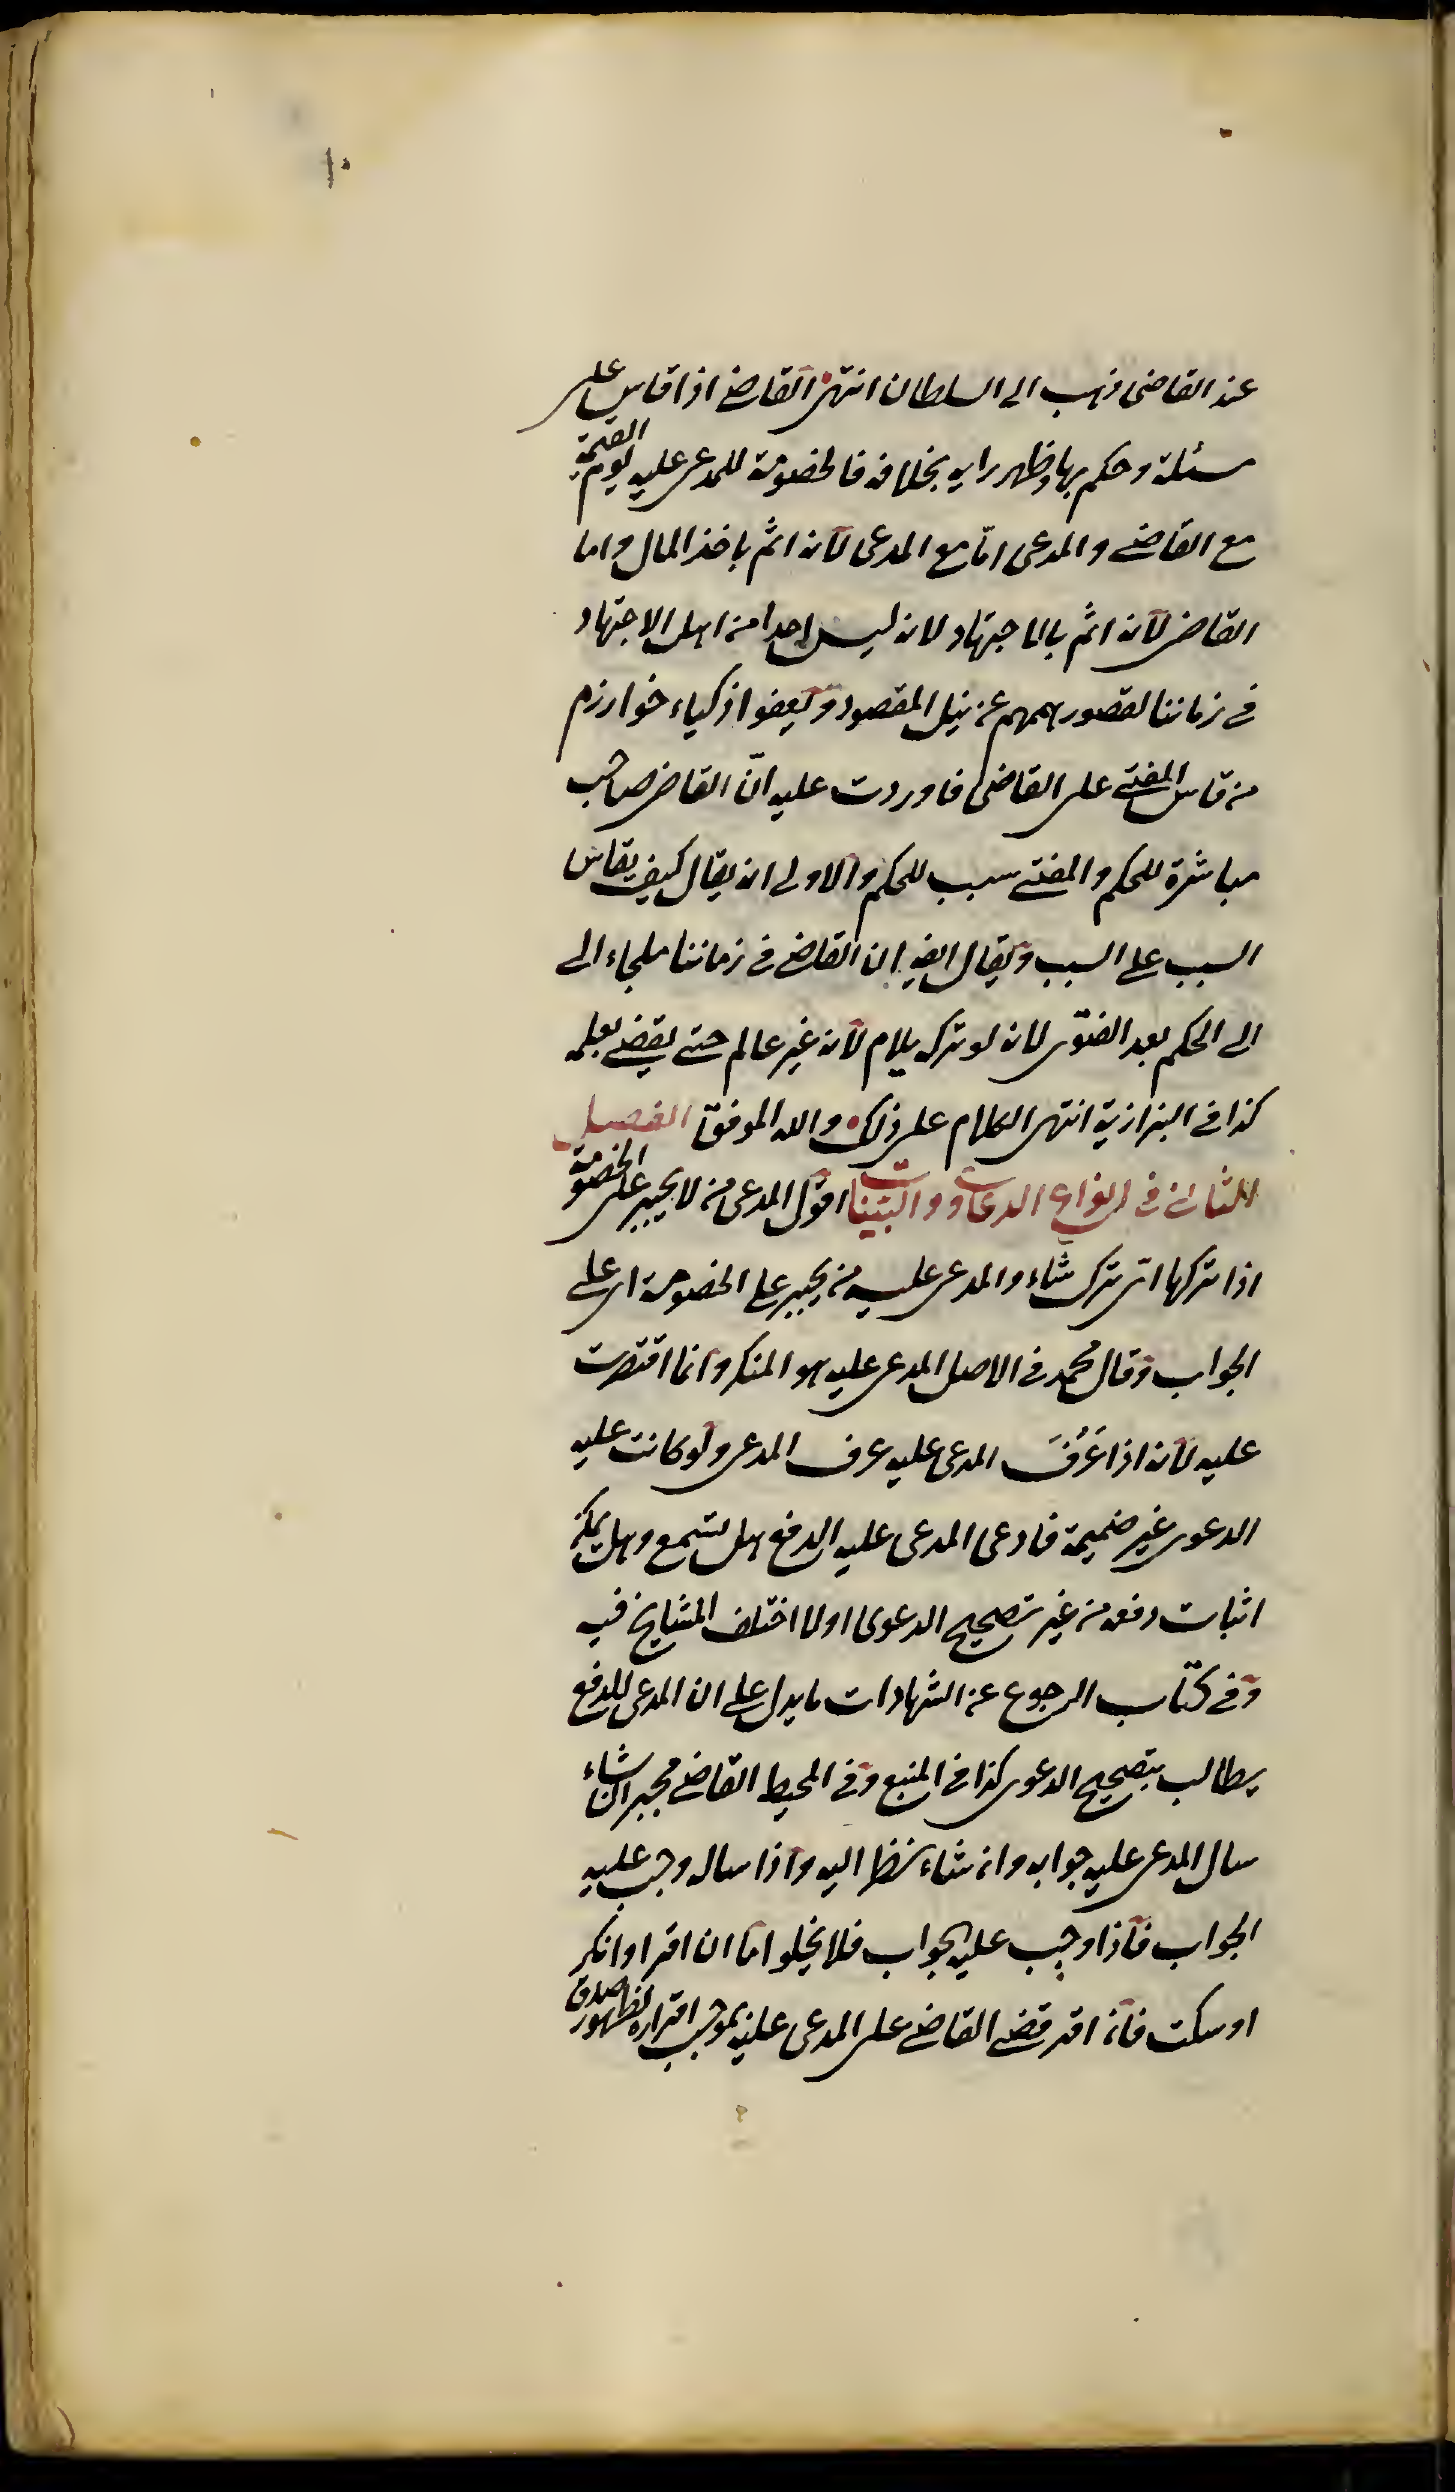 ١٠
عند القاضى ذهب الى السلطان انتهى القاضى اذا قاس على
مسئلة وحكم بها وظهر رايه بخلافه فالخصومة للمدعى عليه يوم القيمة
مع القاضى والمدعى امّا مع المدعى لانه اثم باخذ المال واما
القاضى لانه اثم بالاجتهاد لانه ليس احدا من اهل الاجتهاد
فى زماننا لقصور هممهم عن نيل المقصود وبعض اذكياء خوارزم
من قاس المفتى على القاضى فاوردت عليه انّ القاضى صاحب
مباشرة للحكم والمفتى سبب للحكم والاولى ان يقال كيف يقاس
السبب على السبب ويقال ايضا ان القاضى فى زماننا ملجاء الى
الى الحكم بعد الفتوى لانه لو ترك يلام لانه غير عالم حتى يقضى بعلمه
كذا فى البزازية انتهى الكلام على ذلك والله الموفق الفصل
الثانى فى انواع الدعاوى والبيّنات اقول المدعى من لا يجبر على الخصومة
اذا تركها اىّ ترك شاء والمدعى عليه من يجبر على الخصومة اى على
الجواب وقال محمد فى الاصل المدعى عليه هو المنكر وانما اقتصرت
عليه لانه اذا عَرَفَ المدعى عليه عرف المدعى ولو كانت عليه
الدعوى غير صحيحة فادعى المدعى عليه الدفع هل تسمع وهل يمكن
اثبات دفعه من غير تصحيح الدعوى اولا اختلف المشايخ فيه
وفى كتاب الرجوع عن الشهادات ما يدل على ان المدعى للدفع
يطالب بتصحيح الدعوى كذا فى المنبع وفى المحيط القاضى مخير ان شاء
سال المدعى عليه جوابه وان شاء نظر اليه واذا ساله وجب عليه
الجواب فاذا وجب عليه الجواب فلا يخلو اما ان اقر او انكر
او سكت فان اقر قضى القاضى على المدعى عليه بموجب اقراره لظهور صدق